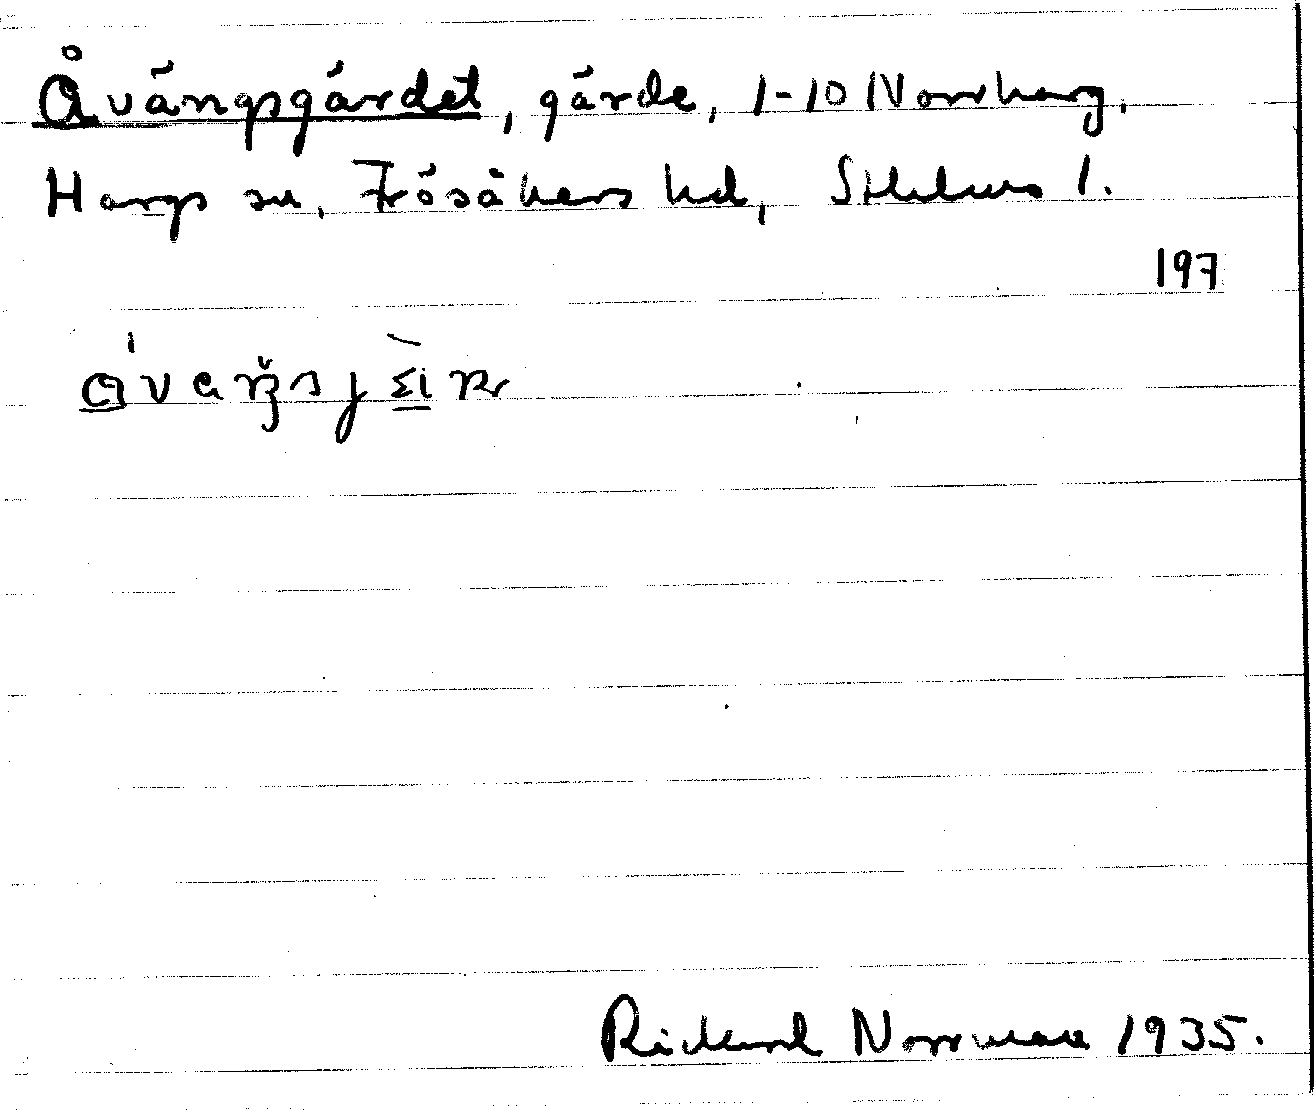 Åvängsgärdet, gärde, 1-10 Norrharg,
Hargs sn, Frösåkers hd, Sthlms l.
197
Rickard Norrman 1935.